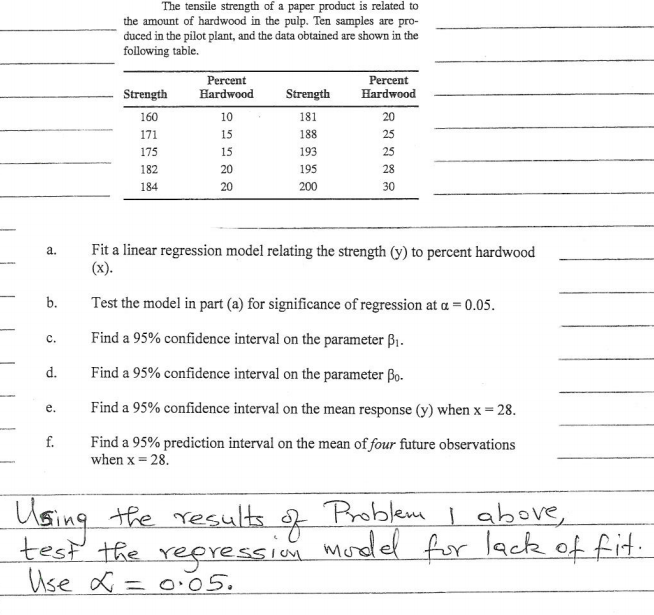 The tensile strength of a paper product is related to
the amount of hardwood in the pulp. Ten samples are pro-
duced in the pilot plant, and the data obtained are shown in the
following table.
Percent Percent
Strength Hardwood Strength Hardwood
160 10 181 20
171 15 188 25
175 15 193 25
182 20 195 28
184 20 200 30
a. Fit a linear regression model relating the strength (y) to percent hardwood
(x).
b. Test the model in part (a) for significance of regression at α = 0.05.
c. Find a 95% confidence interval on the parameter β₁.
d. Find a 95% confidence interval on the parameter β₀.
e. Find a 95% confidence interval on the mean response (y) when x = 28.
f. Find a 95% prediction interval on the mean of four future observations
when x = 28.
Using the results of Problem 1 above,
test the regression model for lack of fit.
Use α = 0.05.